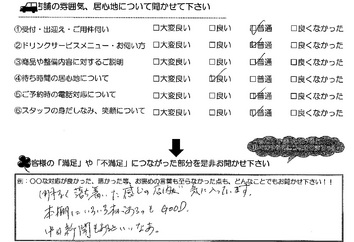 店舗の雰囲気、居心地について聞かせて下さい
①受付・出迎え・ご用件伺い □大変良い □良い □普通 □良くなかった
②ドリンクサービスメニュー・お伺い方 □大変良い □良い □普通 □良くなかった
③商品や整備内容に対するご説明 □大変良い □良い □普通 □良くなかった
④待ち時間の居心地について □大変良い □良い □普通 □良くなかった
⑤ご予約時の電話対応について □大変良い □良い □普通 □良くなかった
⑥スタッフの身だしなみ、笑顔について □大変良い □良い □普通 □良くなかった
お客様の「満足」や「不満足」につながった部分を是非お聞かせ下さい
例：〇〇な対応が良かった、悪かった等、お褒めの言葉も至らなかった点も、どんなことでもお聞かせ下さい！！
落ち着いた感じの店内が気に入っています。
本棚にいろいろ本があるのもGOOD.
中日新聞もあるといいなあ。